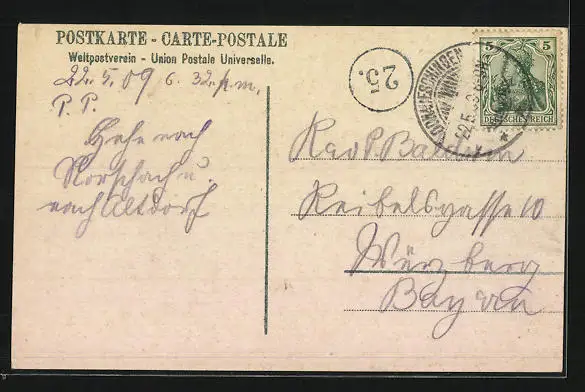 POSTKARTE - CARTE-POSTALE
Weltpostverein - Union Postale Universelle.
22.5.09 6.32 p.m.
P.P.
Gehe nach
Rorschach u.
nach Altdorf
25.
DONAUESCHINGEN
22.5.
5 5
DEUTSCHES REICH
Karl Baldwin
Reibelsgasse 10
Würzberg
Bayern